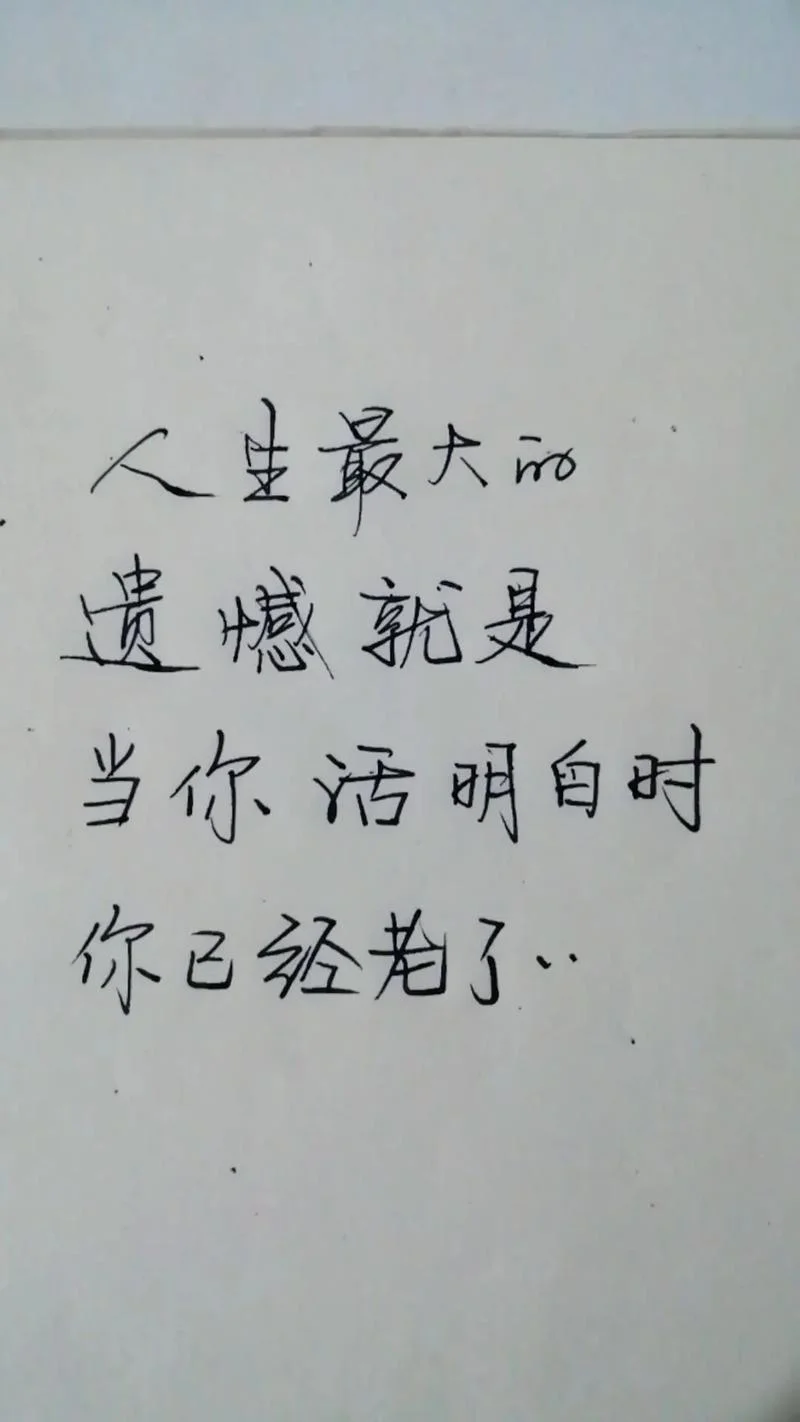 人生最大的
遗憾就是
当你活明白时
你已经老了..